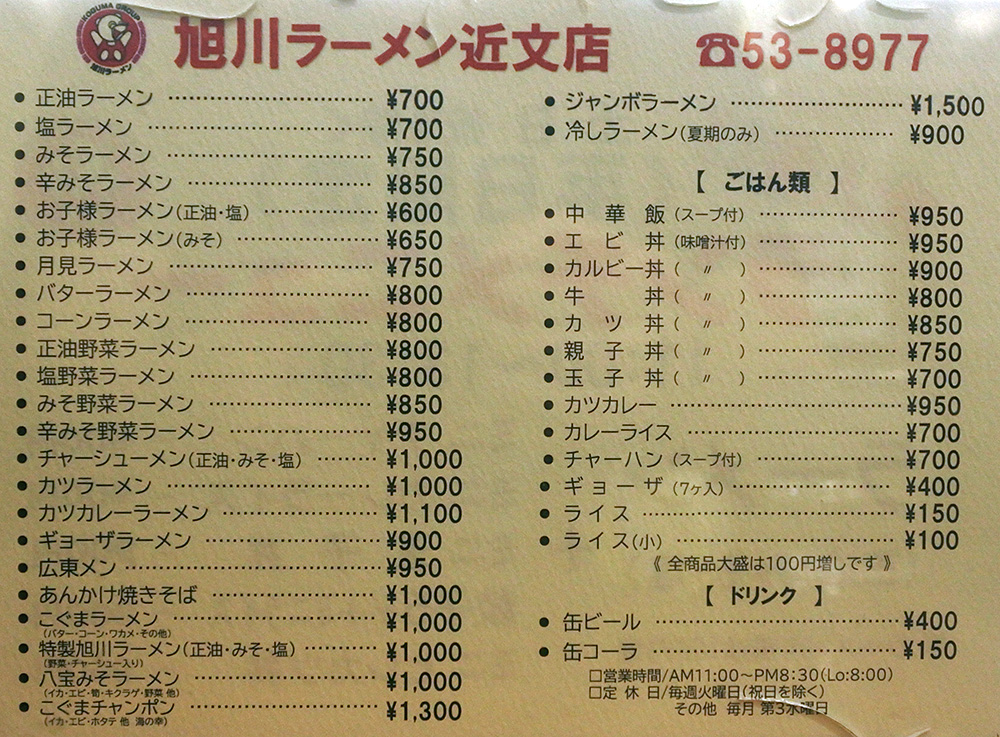 KOGUMA GROUP
旭川ラーメン
旭川ラーメン近文店 ☎53-8977
● 正油ラーメン ¥700
● 塩ラーメン ¥700
● みそラーメン ¥750
● 辛みそラーメン ¥850
● お子様ラーメン(正油・塩) ¥600
● お子様ラーメン(みそ) ¥650
● 月見ラーメン ¥750
● バターラーメン ¥800
● コーンラーメン ¥800
● 正油野菜ラーメン ¥800
● 塩野菜ラーメン ¥800
● みそ野菜ラーメン ¥850
● 辛みそ野菜ラーメン ¥950
● チャーシューメン(正油・みそ・塩) ¥1,000
● カツラーメン ¥1,000
● カツカレーラーメン ¥1,100
● ギョーザラーメン ¥900
● 広東メン ¥950
● あんかけ焼きそば ¥1,000
● こぐまラーメン ¥1,000
(バター・コーン・ワカメ・その他)
● 特製旭川ラーメン(正油・みそ・塩) ¥1,000
(野菜・チャーシュー入り)
● 八宝みそラーメン ¥1,000
(イカ・エビ・筍・キクラゲ・野菜 他)
● こぐまチャンポン ¥1,300
(イカ・エビ・ホタテ 他 海の幸)
● ジャンボラーメン ¥1,500
● 冷しラーメン(夏期のみ) ¥900
【 ごはん類 】
● 中華飯(スープ付) ¥950
● エビ丼(味噌汁付) ¥950
● カルビー丼( 〃 ) ¥900
● 牛丼( 〃 ) ¥800
● カツ丼( 〃 ) ¥850
● 親子丼( 〃 ) ¥750
● 玉子丼( 〃 ) ¥700
● カツカレー ¥950
● カレーライス ¥700
● チャーハン(スープ付) ¥700
● ギョーザ(7ヶ入) ¥400
● ライス ¥150
● ライス(小) ¥100
《 全商品大盛は100円増しです 》
【 ドリンク 】
● 缶ビール ¥400
● 缶コーラ ¥150
□営業時間/AM11:00〜PM8:30(Lo:8:00)
□定 休 日/毎週火曜日(祝日を除く)
その他 毎月 第3水曜日